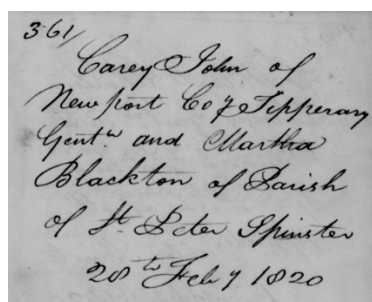 361/
Carey John of
Newport Co of Tipperary
Gentn. and Martha
Blackton of Parish
of St. Peter Spinster
28th Feby 1820